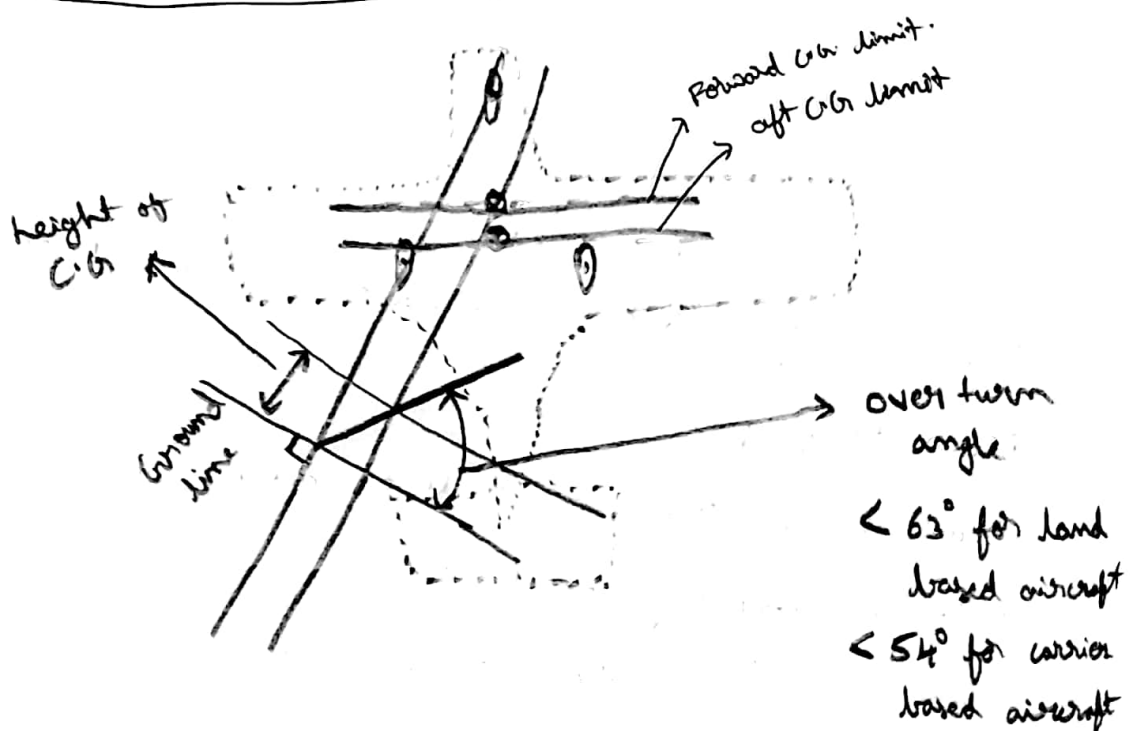 Forward C.G. limit.
aft C.G. limit
height of
C.G.
Ground
line
over turn
angle
< 63° for land
based aircraft
< 54° for carrier
based aircraft